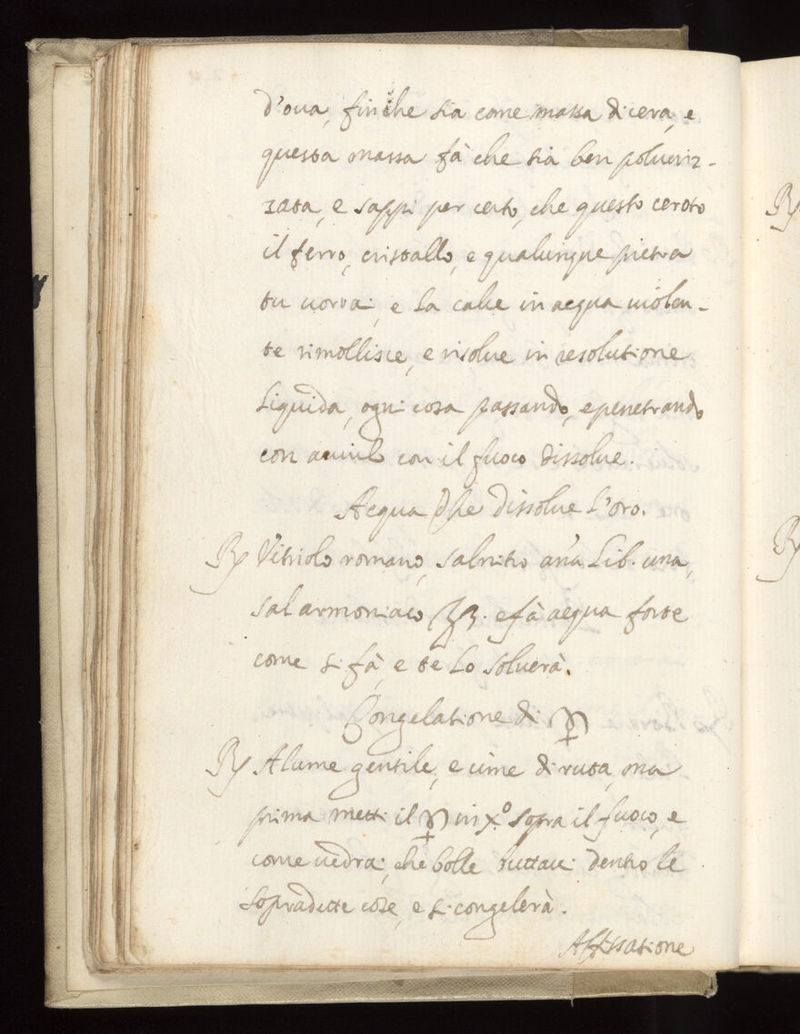 d'oua, finche sia come massa di cera, e
questa massa fà che sia ben poluriz-
zata, e sappi per certo, che questo ceroto
il ferro, cristallo, e qualunque pietra
tu uorrai, e la calce in acqua uiolen-
te rimollisce, e risolue in resolutione
liquida, ogni cosa passando, e penetrando
con con il fuoco dissolue.
Acqua che dissolue l'oro.
℞ Vitriolo romano, salnitro añа lib. una,
sal armoniaco ℥3. e fà acqua forte
come si fà, e te lo soluerà.
Congelatione di ☿
℞ Alume gentile, e cime di ruta, ma
prima metti il ☿ in X.º sopra il fuoco, e
come uedrai, che bolle buttaui dentro le
sopradette cose, e si congelerà.
Affissatione